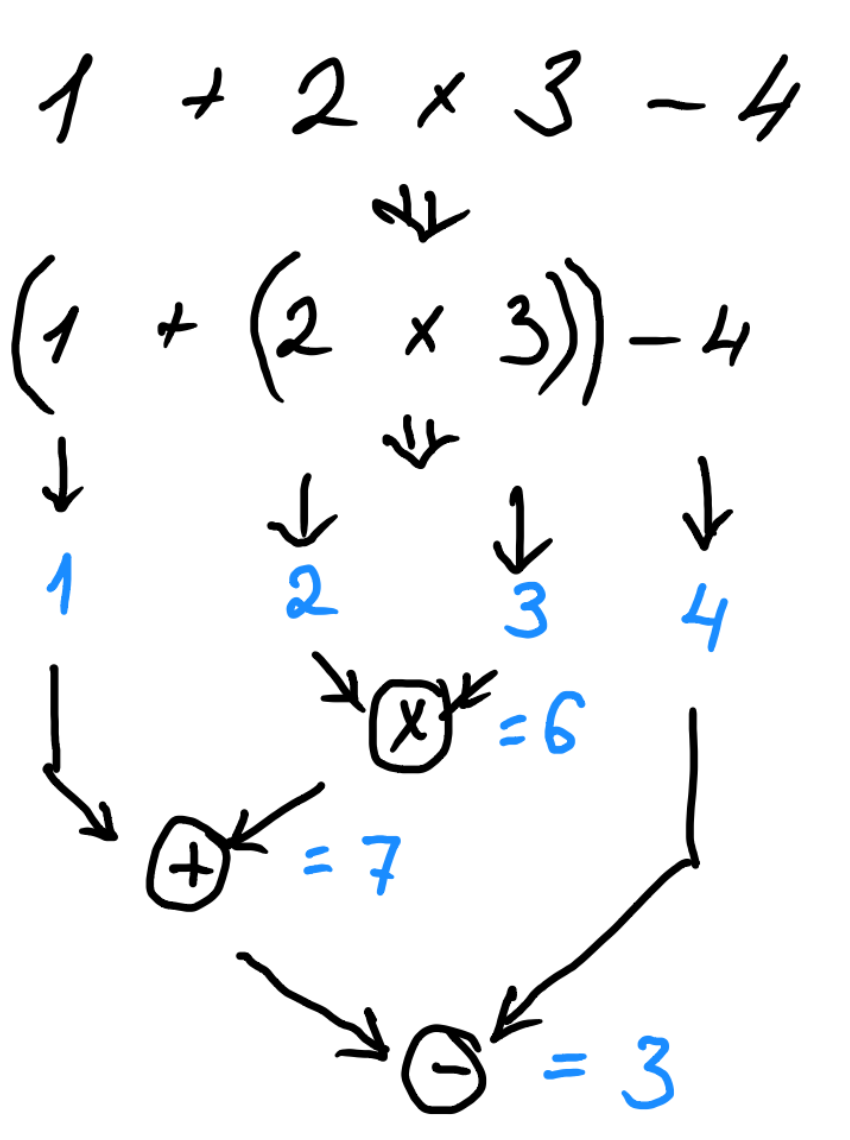 1 + 2 × 3 - 4
(1 + (2 × 3)) - 4
1 2 3 4
× = 6
+ = 7
- = 3